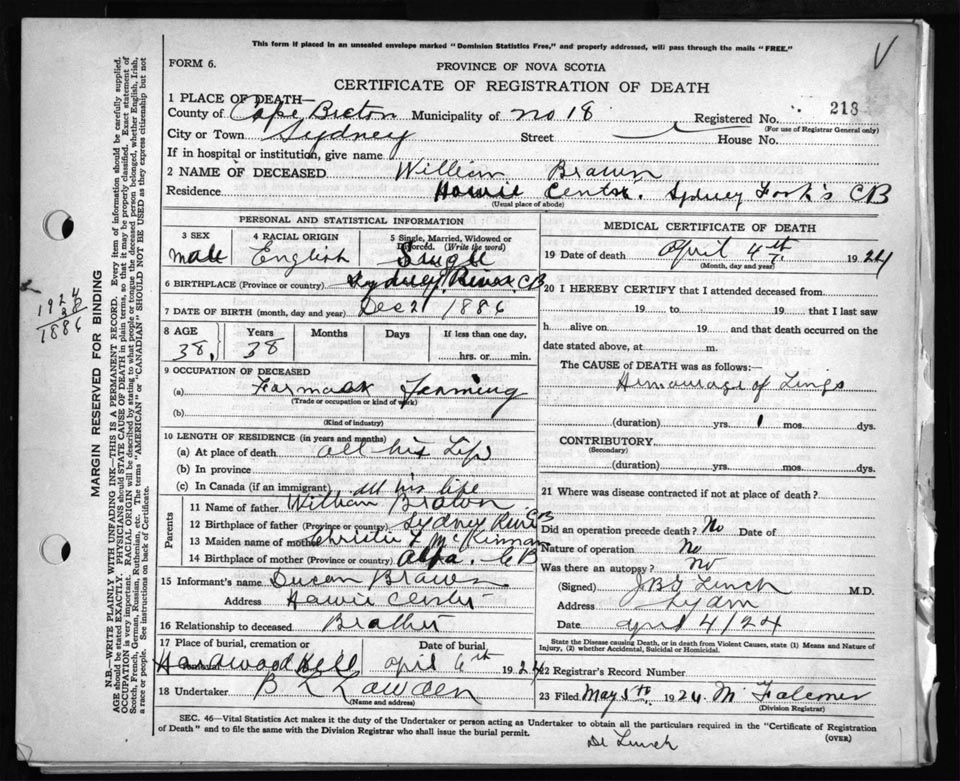 This form if placed in an unsealed envelope marked "Dominion Statistics Free," and properly addressed, will pass through the mails "FREE."
V
FORM 6.
PROVINCE OF NOVA SCOTIA
CERTIFICATE OF REGISTRATION OF DEATH
1 PLACE OF DEATH—
County of Cape Breton Municipality of no 18 Registered No. 213
(For use of Registrar General only)
City or Town Sydney Street House No.
If in hospital or institution, give name
2 NAME OF DECEASED William Brown
Residence Howie Center. Sydney Fork's CB
(Usual place of abode)
PERSONAL AND STATISTICAL INFORMATION
3 SEX
male
4 RACIAL ORIGIN
English
5 Single, Married, Widowed or Divorced. (Write the word)
Single
6 BIRTHPLACE (Province or country) Sydney River CB
7 DATE OF BIRTH (month, day and year) Dec 21 1886
8 AGE Years Months Days If less than one day,
38, 38 hrs. or min.
9 OCCUPATION OF DECEASED
(a) Farming
(Trade or occupation or kind of work)
(b)
(Kind of industry)
10 LENGTH OF RESIDENCE (in years and months)
(a) At place of death all his Life
(b) In province
(c) In Canada (if an immigrant) all his life
Parents
11 Name of father William
12 Birthplace of father (Province or country) Sydney River CB
13 Maiden name of mother Christie McKinnon
14 Birthplace of mother (Province or country) CB
15 Informant's name Brown
Address Howie Center
16 Relationship to deceased Brother
17 Place of burial, cremation or
Hardwood Hill april 6th 1924
18 Undertaker B L
(Name and address)
MEDICAL CERTIFICATE OF DEATH
19 Date of death april 4th 1924
(Month, day and year)
20 I HEREBY CERTIFY that I attended deceased from
19 to 19 that I last saw
h alive on 19 and that death occurred on
date stated above, at m.
The CAUSE OF DEATH was as follows:—
of Lungs
(duration) yrs. 1 mos. dys.
CONTRIBUTORY.
(Secondary)
(duration) yrs. mos. dys.
21 Where was disease contracted if not at place of death?
Did an operation precede death? No Date of
Nature of operation No
Was there an autopsy? No
(Signed) Lynch M.D.
Address
Date april 4/24
State the Disease causing Death, or in death from Violent Causes, state (1) Means and Nature of Injury, (2) whether Accidental, Suicidal or Homicidal.
22 Registrar's Record Number
23 Filed May 5th, 1924 M. Falconer
(Division Registrar)
SEC. 46—Vital Statistics Act makes it the duty of the Undertaker or person acting as Undertaker to obtain all the particulars required in the "Certificate of Registration
of Death" and to file the same with the Division Registrar who shall issue the burial permit.
(OVER)
MARGIN RESERVED FOR BINDING
N.B.—WRITE PLAINLY WITH UNFADING INK—THIS IS A PERMANENT RECORD. Every item of information should be carefully supplied.
AGE should be stated EXACTLY. PHYSICIANS should STATE CAUSE OF DEATH in plain terms, so that it may be properly classified. Exact statement of
OCCUPATION is very important. RACIAL ORIGIN will be described by stating to what people or tongue the deceased person belonged, whether English, Irish,
Scotch, French, German, Russian, Ruthenian, etc. The terms "AMERICAN" or "CANADIAN" SHOULD NOT BE USED as they express citizenship but not
a race or people. See instructions on back of Certificate.
1924
38
1886